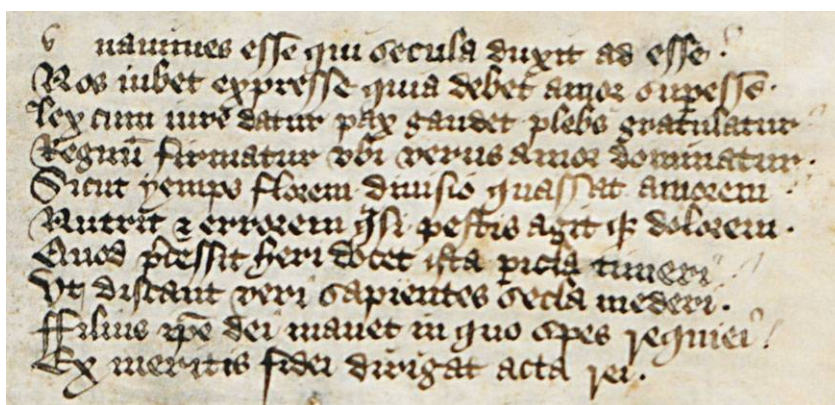 v nanimes esse qui secula duxit ad esse
Nos iubet expresse quia debet amor suꝑesse.
Lex cum iure datur pax gaudet plebs gratulatur
Regnū firmatur vbi verus amor dominatur.
Sicut yemps florem diuisio quassat amorem
Nutrit ⁊ errorem qͣsi pestis agit qꝫ dolorem.
Quod p̄cessit heri docet ista ꝑicla timeri
Vt discant veri sapientes secla mederi.
ffilius ip̄e dei manet in quo spes requiei
Ex meritis fidei dirigat acta rei.